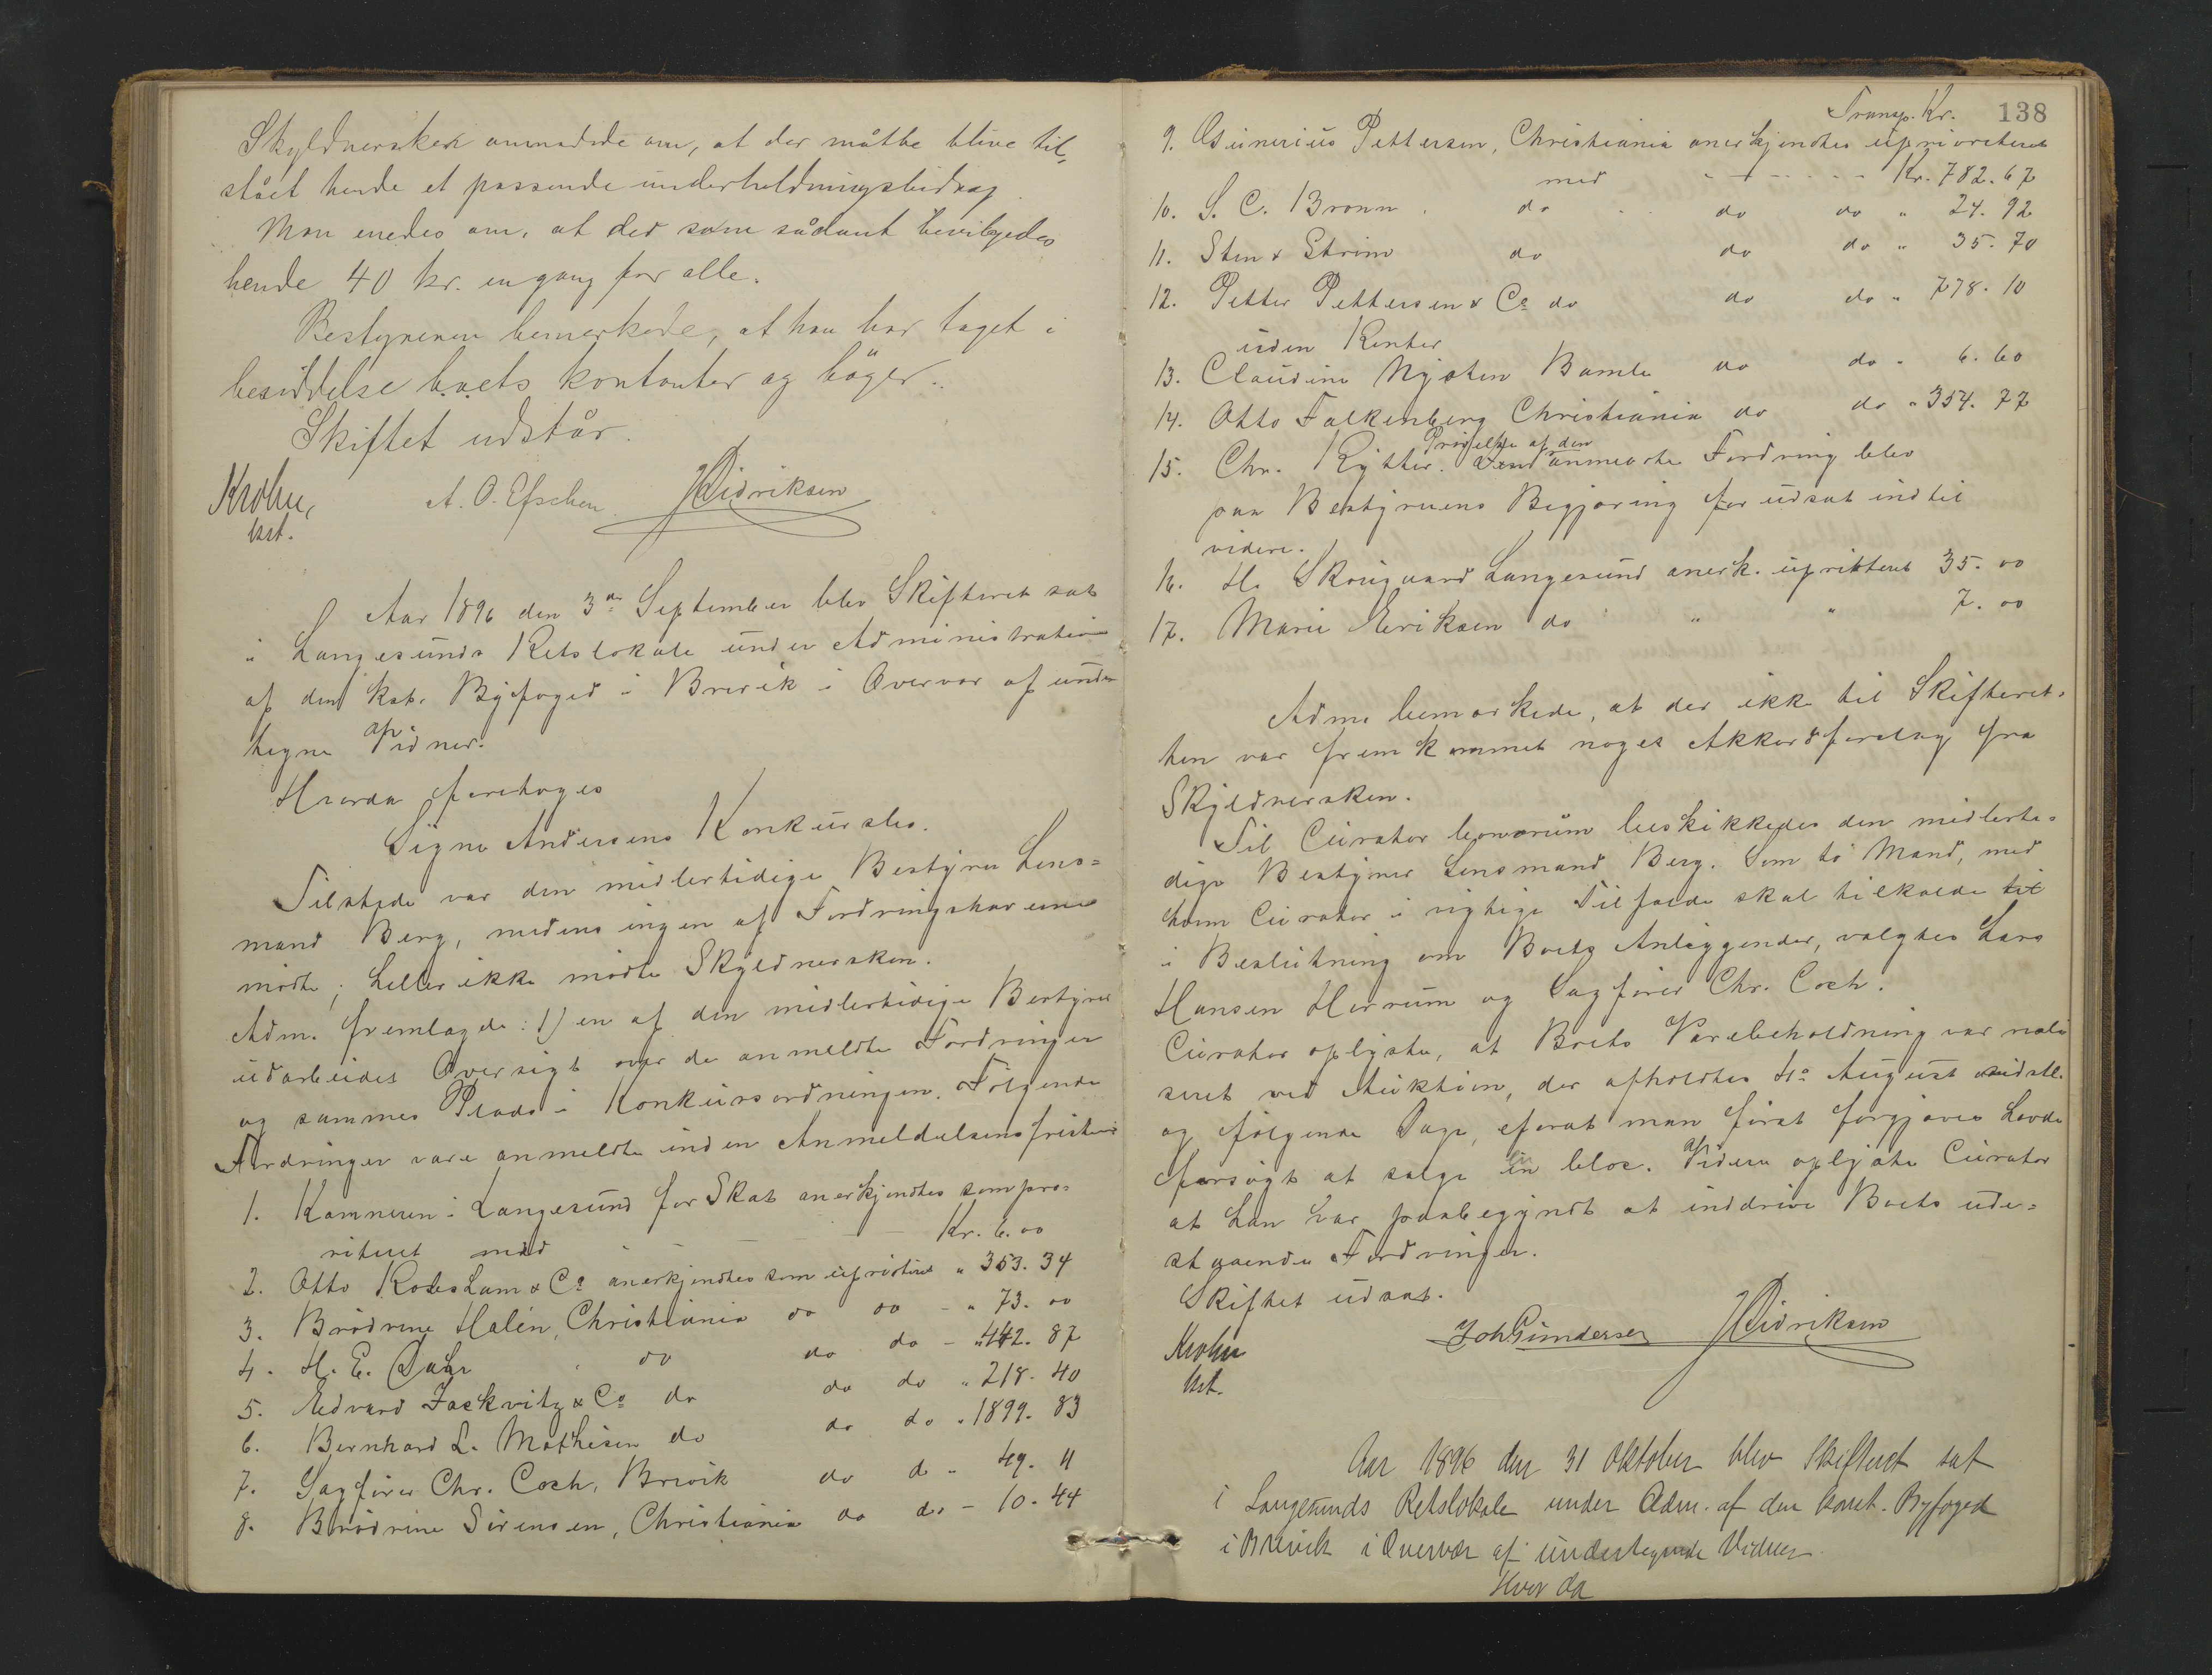 Skyldnersken anmodede om, at der måtte blive til-
stået hende et passende underholdningsbidrag.
Man enedes om, at der som sådant bevilgedes
hende 40 kr. en gang for alle.
Bestyreren bemerkede, at han har taget i
besiddelse boets kontanter og bøger.
Skiftet udstår.
Krohn, A. O. Didriksen
kst.
Aar 1896 den 3de September blev Skifteret sat
i Langesunds Retslokale under Administration
af den kst. Byfoged i Brevik i Overvær af under
tegne Vidner.
Hvorda foretoges
Signe Andersens Konkursbo.
Tilstede var den midlertidige Bestyrer Lens=
mand Berg, medens ingen af Fordringshaverne
mødte; heller ikke mødte Skyldnersken.
Adm. fremlagde: 1) en af den midlertidige Bestyrer
udarbeidet Oversigt over de anmeldte Fordringer
og sammes Plads i Konkursordningen. Følgende
Fordringer vare anmeldte inden Anmeldelsensfristen
1. Kæmneren i Langesund for Skat anerkjendtes som prio=
riteret med Kr. 6.00
2. Otto Robsham & Co anerkjendtes som uprioritret " 353.34
3. Brødrene Halén, Christiania do do - " 73.00
4. H. E. Dahr do do do - " 442.87
5. Edvard Jackwitz & Co do do do " 218.40
6. Bernhard L. Mathiesen do do do " 1899.83
7. Sagfører Chr. Coch, Brevik do do " 49.11
8. Brødrene Sørensen, Christiania do do - 10.44
Transp. Kr. 138
9. Asinerius Pettersen, Christiania anerkjendtes uprioriteret
med - - - - - Kr. 782.67
10. S. C. Bronn. do do do " 24.92
11. Sten & Strøm do do do " 35.70
12. Petter Pettersen & Co do do do " 778.10
uden Renter
13. Claudine Nysten Bamle do do " 6.60
14. Otto Falkenberg Christiania do do " 354.77
15. Chr. Rytter. Prøvelse af den anmeldte Fordring blev
paa Bestyrerens Begjæring for udsat indtil
videre.
16. H. Skougaard Langesund anerk. upriteret 35.00
17. Marie Eriksen do " " 7.00
Adm. bemærkede, at der ikke til Skifteret-
ten var fremkommet noget Akkordforslag fra
Skyldnersken.
Til Curator bonorum beskikkedes den midlerti=
dige Bestyrer Lensmand Berg. Som to Mænd, med
hvem Curator i vigtige Tilfælde skal tilkalde til
i Beslutning om Boets Anliggender, valgtes Lars
Hansen Herrum og Sagfører Chr. Coch.
Curator oplyste, at Boets Varebeholdning var reali
seret ved Auktion, der afholdtes 4de August sidstl.
og følgende Dage, efterat man først forgjæves havde
forsøgt at sælge en bloc. Videre oplyste Curator
at han har paabegyndt at inddrive Boets ude=
staaende Fordringer.
Skiftet udsat.
Krohn Joh Gundersen Didriksen
kst.
Aar 1896 den 31 Oktober blev Skifteret sat
i Langesunds Retslokale under Adm. af den konst. Byfoged
i Brevik i Overvær af undertegnede Vidner
Hvor da